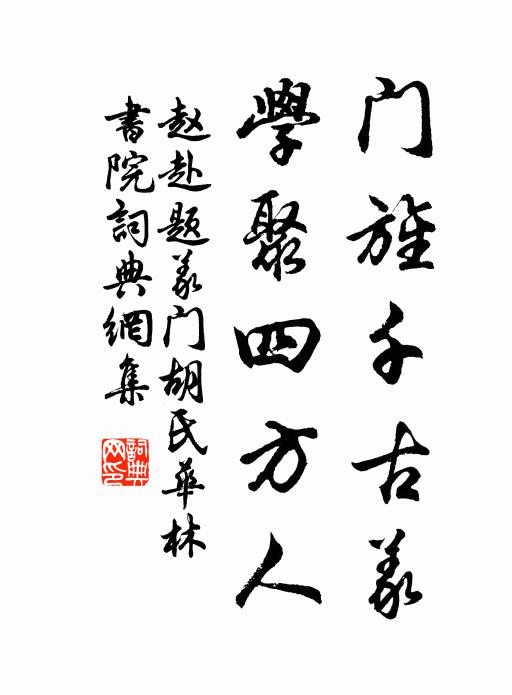 门旌千古义
學聚四方人
赵赴题义门胡氏华林
書院詞典網集
詞典网印